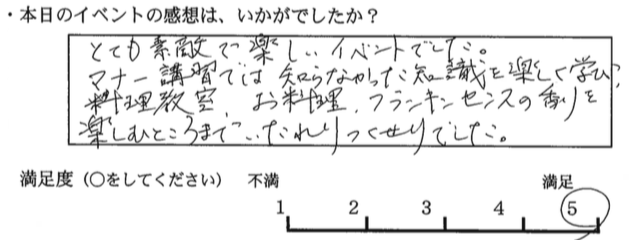 ・本日のイベントの感想は、いかがでしたか？
とても素敵で楽しいイベントでした。
マナー講習では知らなかった知識を楽しく学び、
料理教室、お料理、フランキンセンスの香りを
楽しむところまで、いたれりつくせりでした。
満足度（○をしてください） 不満 満足
1 2 3 4 5